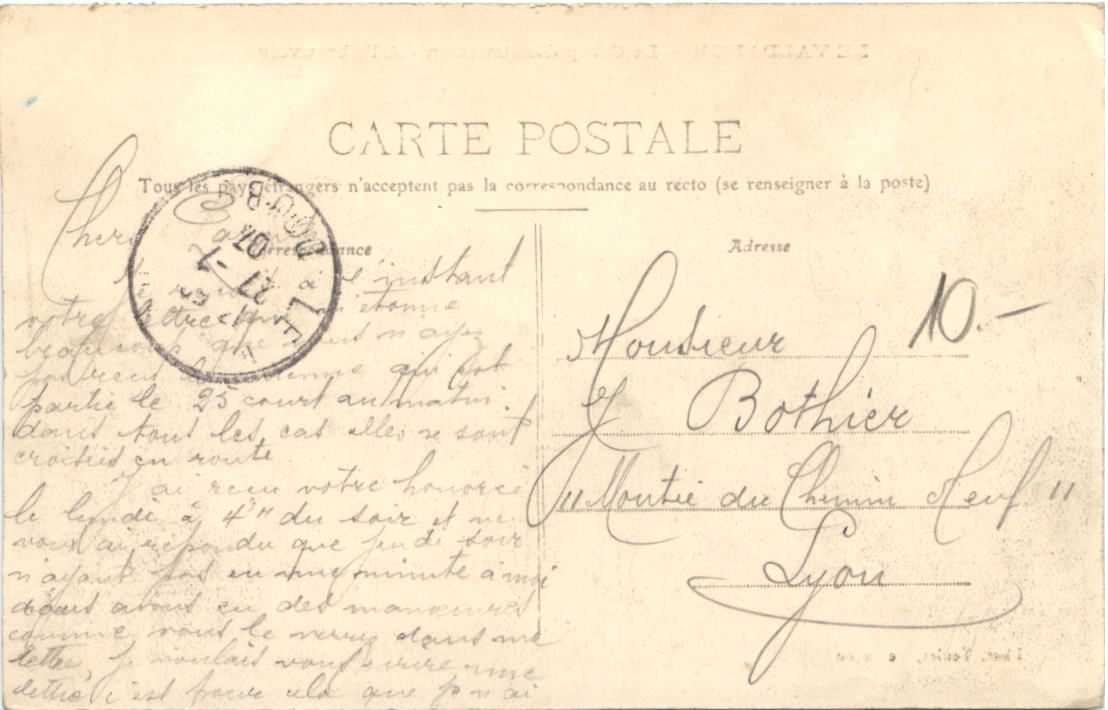 LE VALDAHON - Le Camp
CARTE POSTALE
Tous les pays étrangers n'acceptent pas la correspondance au recto (se renseigner à la poste)
Correspondance
Adresse
DOUBS
27 -7
07
10.-
Chers
à l'instant
votre lettre m'étonne
beaucoup que vous n'ayez
pas reçu la mienne qui est
partie le 25 court au matin.
dans tous les cas elles se sont
croisées en route.
J'ai reçu votre honorée
le lundi à 4H du soir et ne
vous ai répondu que jeudi soir
n'ayant pas eu une minute à moi
nous avons eu des manœuvres
comme vous le verrez dans ma
lettre, je voulais vous écrire une
lettre c'est pour cela que je n'ai
Monsieur
J Bothier
"Montée du Chemin Neuf"
Lyon